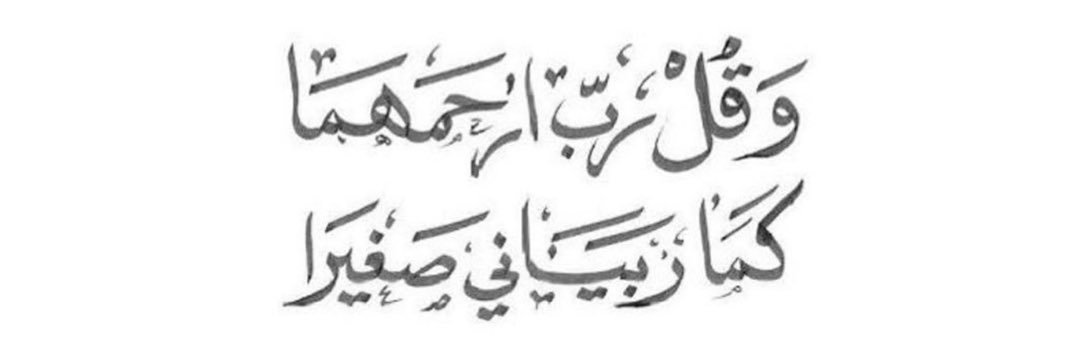 وَقُلْ رَبِّ ارْحَمَهَمَا
كَمَا رَبَيَاني صَغيَرا